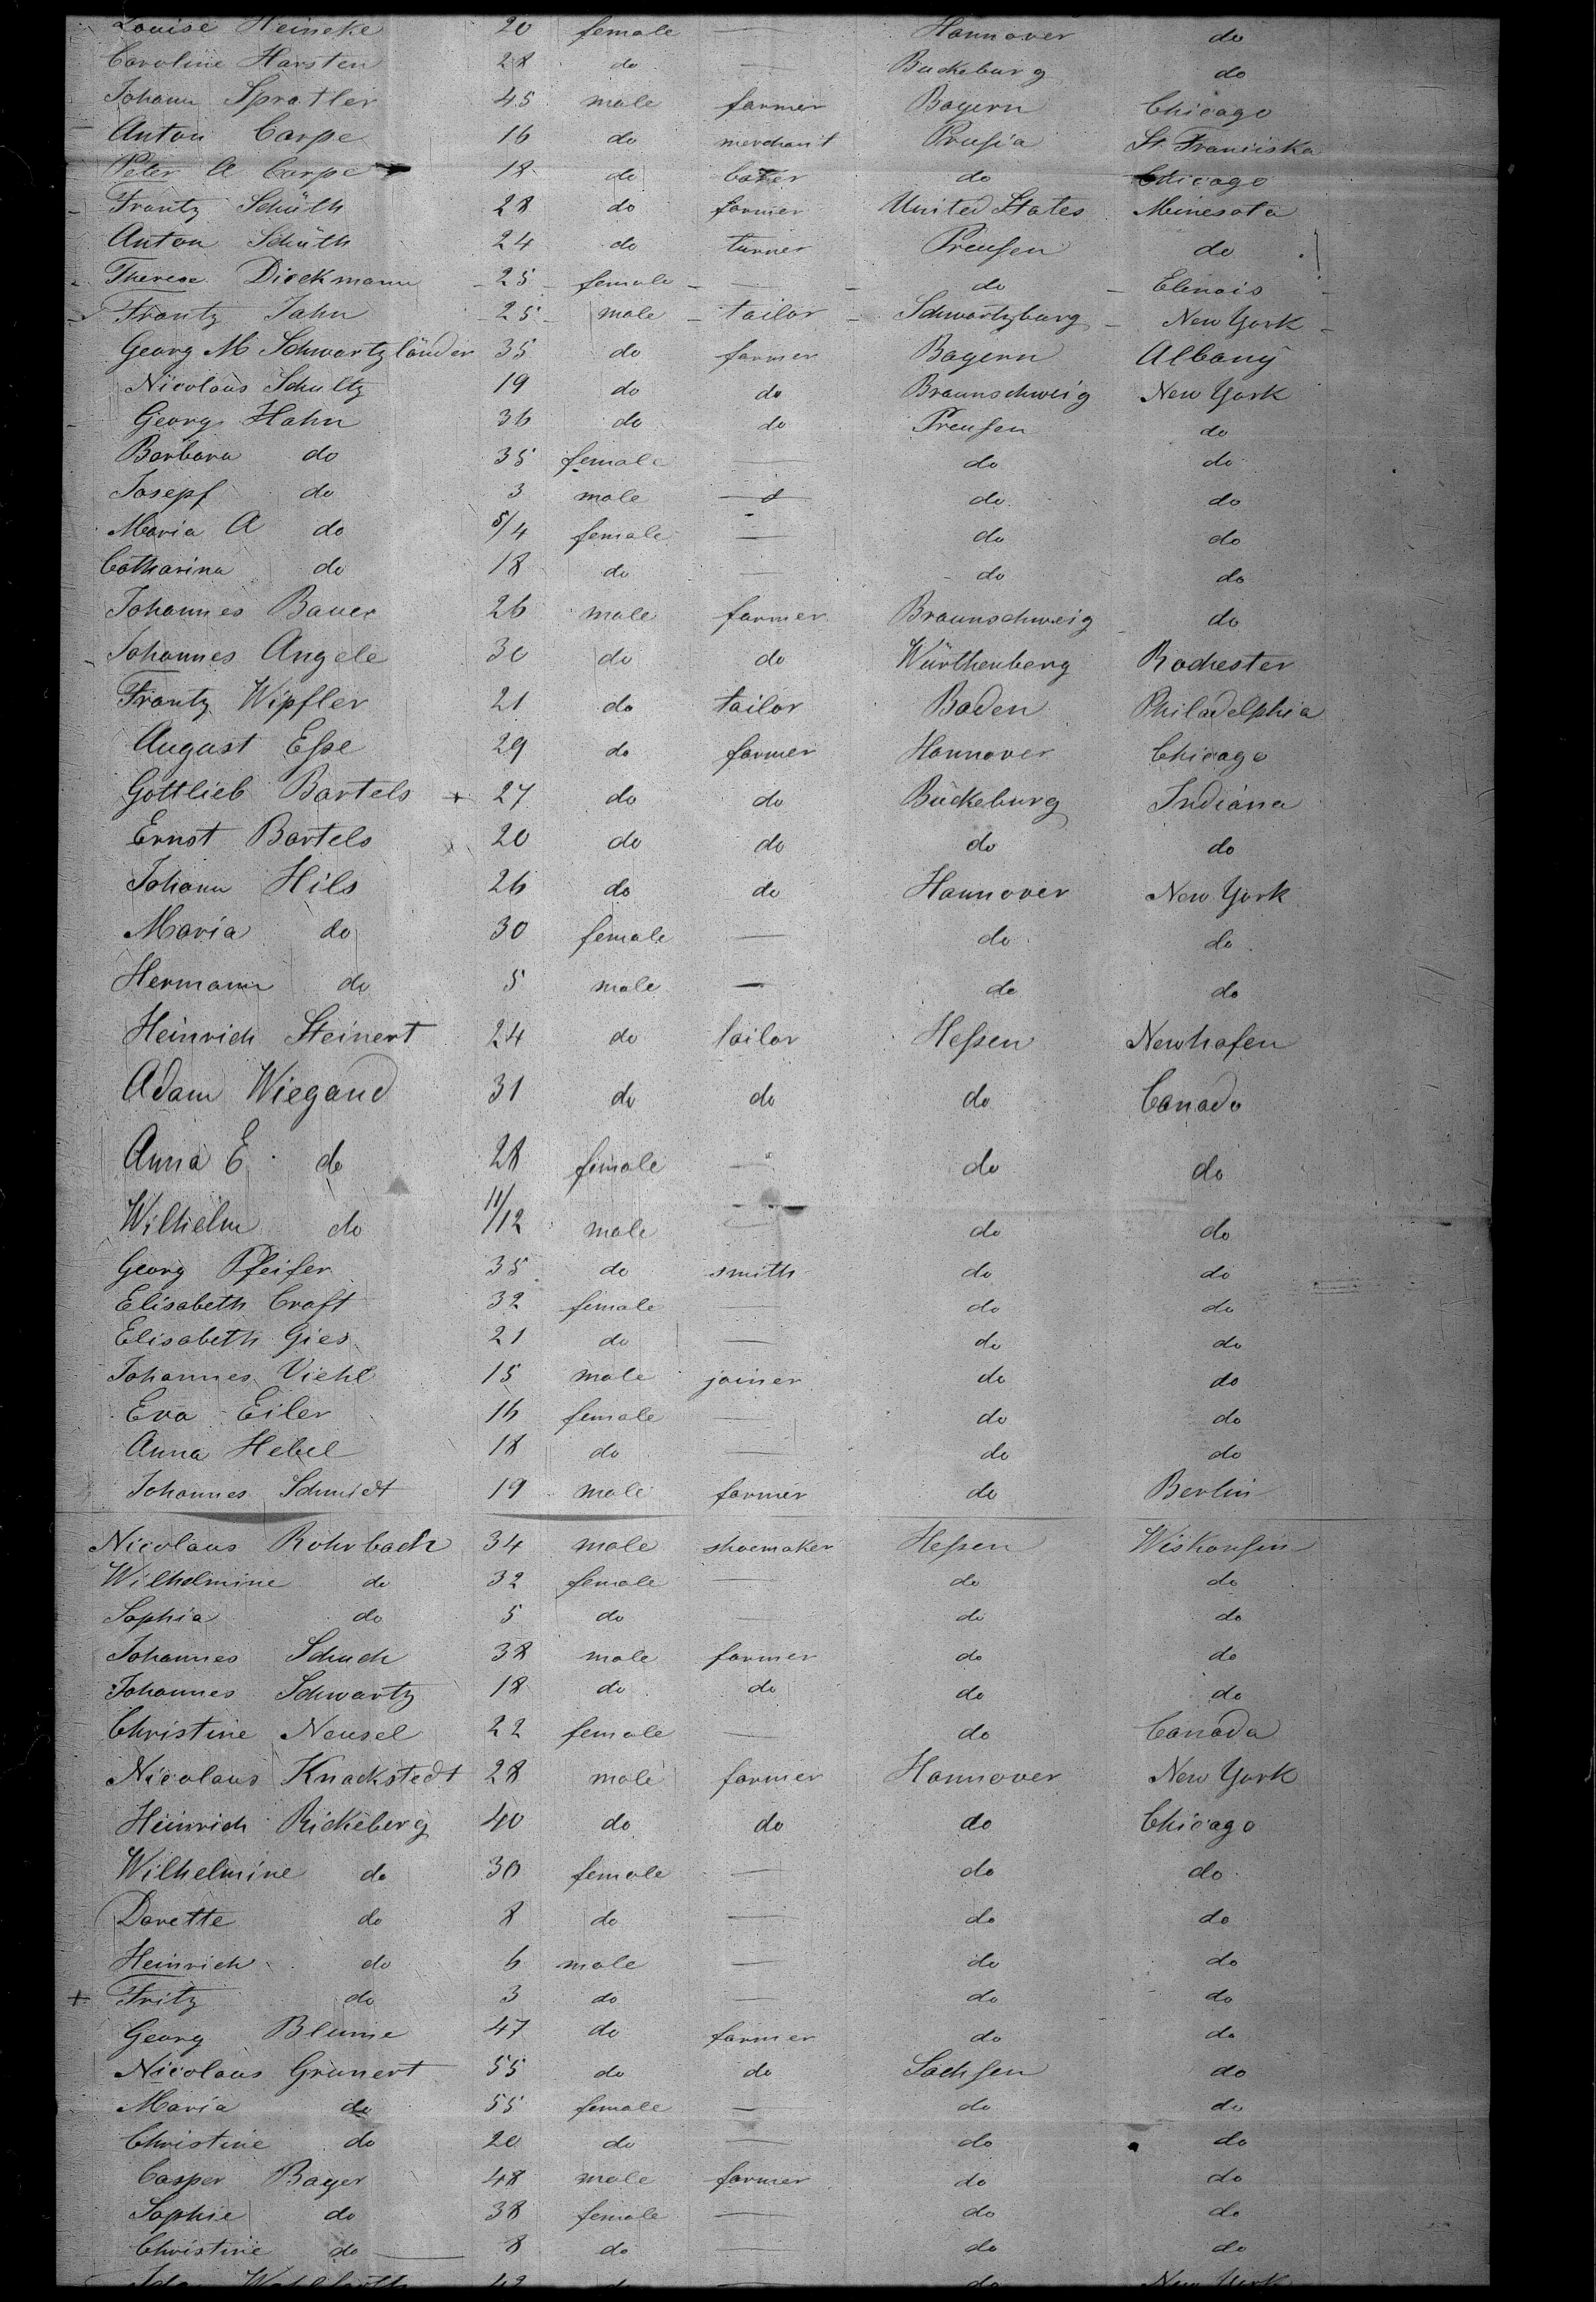 Louise Heineke 20 female — Hannover do
Caroline Harsten 28 do — Buckeburg do
Johann Spratler 45 male farmer Bayern Chicago
Anton Carpe 16 do merchant Prusia St. Franciska
Peter A Carpe 18 do do Chicago
Frantz Schüth 28 do farmer United States Minesota
Anton Schüth 24 do turner Preusen do
Therese Dieckmann 25 female — do Elenois
Frantz Jahn 25 male tailor Schwartzburg New York
Georg M Schwartzländer 35 do farmer Bayern Albany
Nicolaus Schultz 19 do do Braunschweig New York
Georg Hahn 36 do do Preusen do
Barbara do 35 female — do do
Josepf do 3 male — do do
Maria A do 5/4 female — do do
Catharina do 18 do — do do
Johannes Bauer 26 male farmer Braunschweig do
Johannes Angele 30 do do Würthenberg Rochester
Frantz Wipfler 21 do tailor Baden Philadelphia
August Esse 29 do farmer Hannover Chicago
Gottlieb Bartels + 27 do do Bückeburg Indiana
Ernst Bartels x 20 do do do do
Johann Hils 26 do do Hannover New York
Maria do 30 female — do do
Hermann do 5 male — do do
Heinrich Steinert 24 do tailor Hessen Newhafen
Adam Wiegand 31 do do do Canada
Anna E. do 28 female — do do
Wilhelm do 11/12 male — do do
Georg Pfeifer 35 do smith do do
Elisabeth Craft 32 female — do do
Elisabeth Gies 21 do — do do
Johannes Viehl 15 male joiner do do
Eva Eiler 16 female — do do
Anna Hebel 18 do — do do
Johannes Schmidt 19 male farmer do Berlin
Nicolaus Rohrbach 34 male shoemaker Hessen Wiskonsin
Wilhelmine do 32 female — do do
Sophia do 5 do — do do
Johannes Schuch 38 male farmer do do
Johannes Schwartz 18 do do do do
Christine Neusel 22 female — do Canada
Nicolaus Knackstedt 28 male farmer Hannover New York
Heinrich Rickeberg 40 do do do Chicago
Wilhelmine do 30 female — do do
Dorette do 8 do — do do
Heinrich do 6 male — do do
+ Fritz do 3 do — do do
Georg Blume 47 do farmer do do
Nicolaus Grunert 55 do do Sachsen do
Maria do 55 female — do do
Christine do 20 do — do do
Casper Bayer 48 male farmer do do
Sophie do 38 female — do do
Christine do 8 do — do do
42 do — do New York